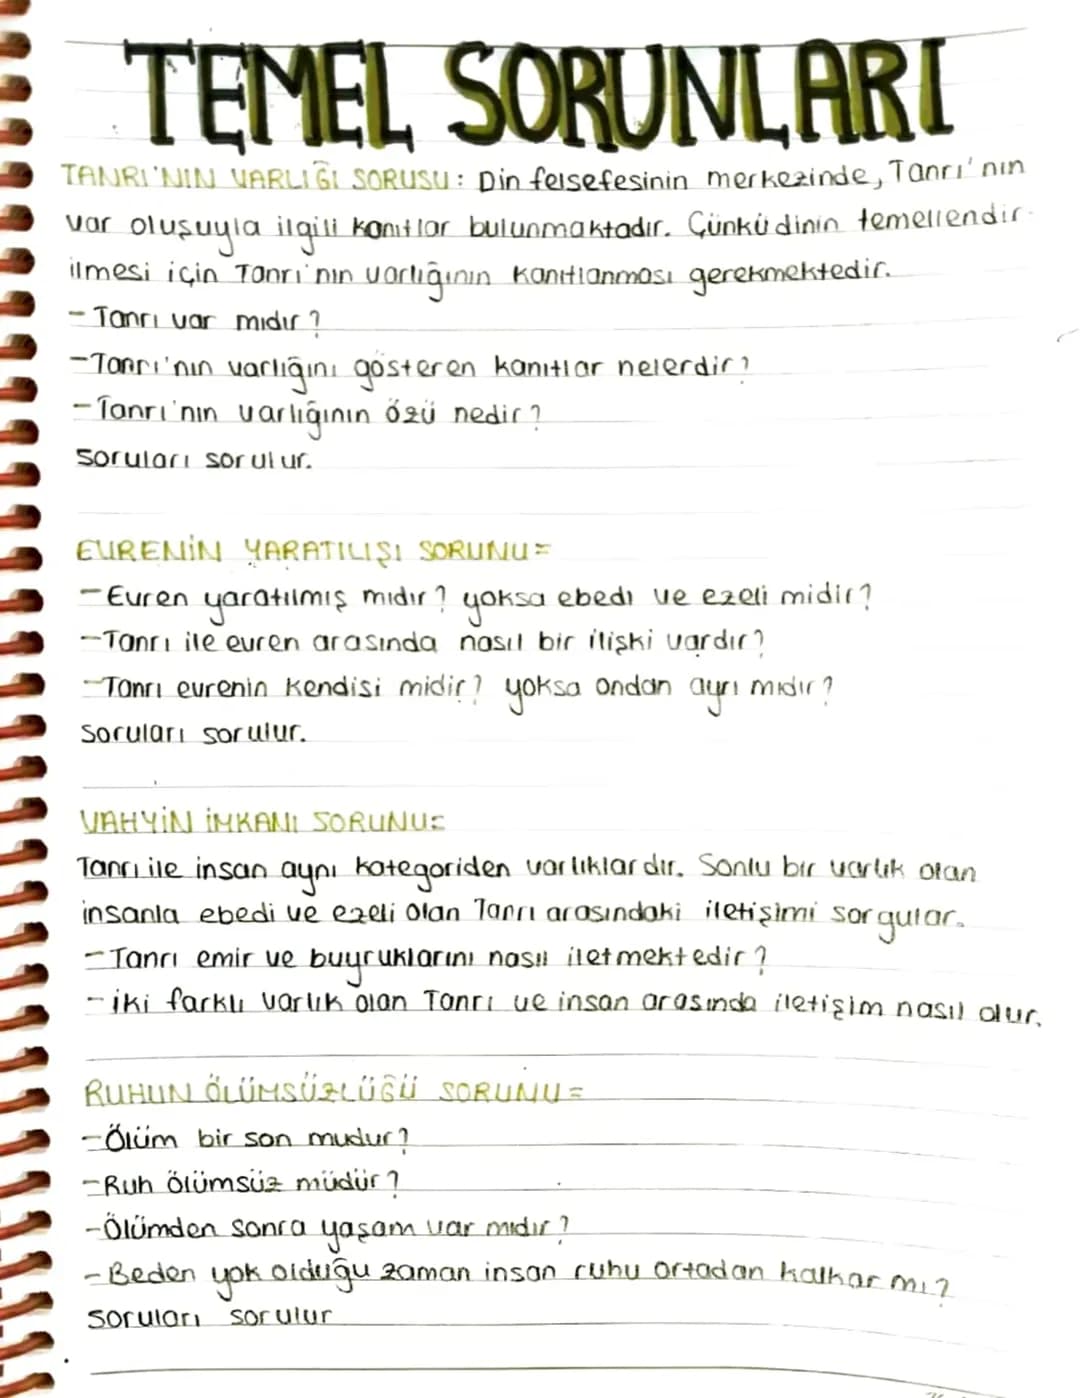 TEMEL SORUNLARI
TANRI'NIN VARLIĞI SORUSU: Din felsefesinin merkezinde, Tanrı'nın
var oluşuyla ilgili kanıtlar bulunmaktadır. Çünkü dinin temellendir-
ilmesi için Tanrı'nın varlığının kanıtlanması gerekmektedir.
- Tanrı var mıdır?
- Tanrı'nın varlığını gösteren kanıtlar nelerdir?
- Tanrı'nın varlığının özü nedir?
soruları sorulur.
EVRENİN YARATILIŞI SORUNU=
- Evren yaratılmış mıdır? yoksa ebedı ve ezeli midir?
- Tanrı ile evren arasında nasıl bir ilişki vardır?
- Tanrı evrenin kendisi midir? yoksa ondan ayrı mıdır?
soruları sorulur.
VAHYİN İMKANI SORUNU=
Tanrı ile insan aynı kategoriden varlıklardır. Sonlu bir varlık olan
insanla ebedi ve ezeli olan Tanrı arasındaki iletişimi sorgular.
- Tanrı emir ve buyruklarını nasıl iletmektedir?
- iki farklı varlık olan Tanrı ve insan arasında iletişim nasıl olur.
RUHUN ÖLÜMSÜZLÜĞÜ SORUNU=
- Ölüm bir son mudur?
- Ruh ölümsüz müdür?
- Ölümden sonra yaşam var mıdır?
- Beden yok olduğu zaman insan ruhu ortadan kalkar mı?
soruları sorulur